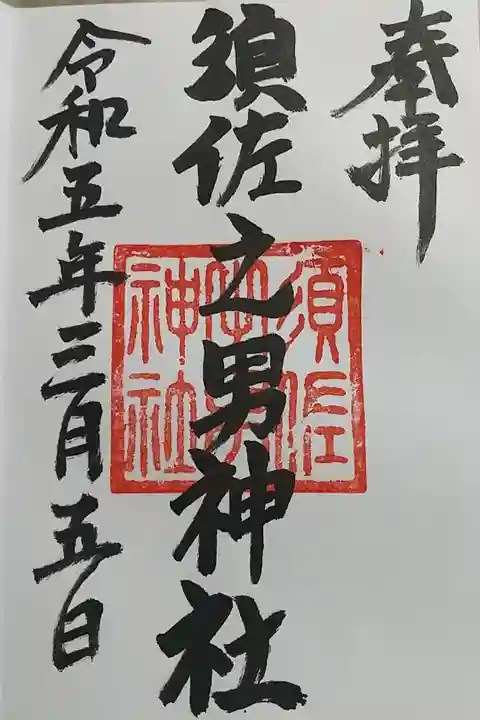 奉拝
須佐之男神社
令和五年三月五日
須佐
之男
神社